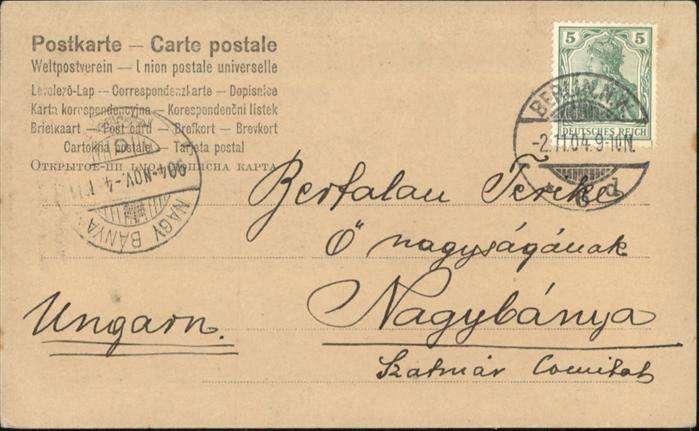 Postkarte — Carte postale
Weltpostverein — Union postale universelle
Levelező-Lap — Correspondenzkarte — Dopisnice
Karta korespondencyjna — Korespondenční listek
Briefkaart — Post card — Brefkort — Brevkort
Cartolina postale — Tarjeta postal
Открытое письмо
5 5
DEUTSCHES REICH
BERLIN, N.W.
-2.11.04.9-10N.
904-NOV.-4
NAGY BÁNYA
Bertalan Teréke
Ő nagyságának
Ungarn.
Nagybánya
Szatmár Comitat